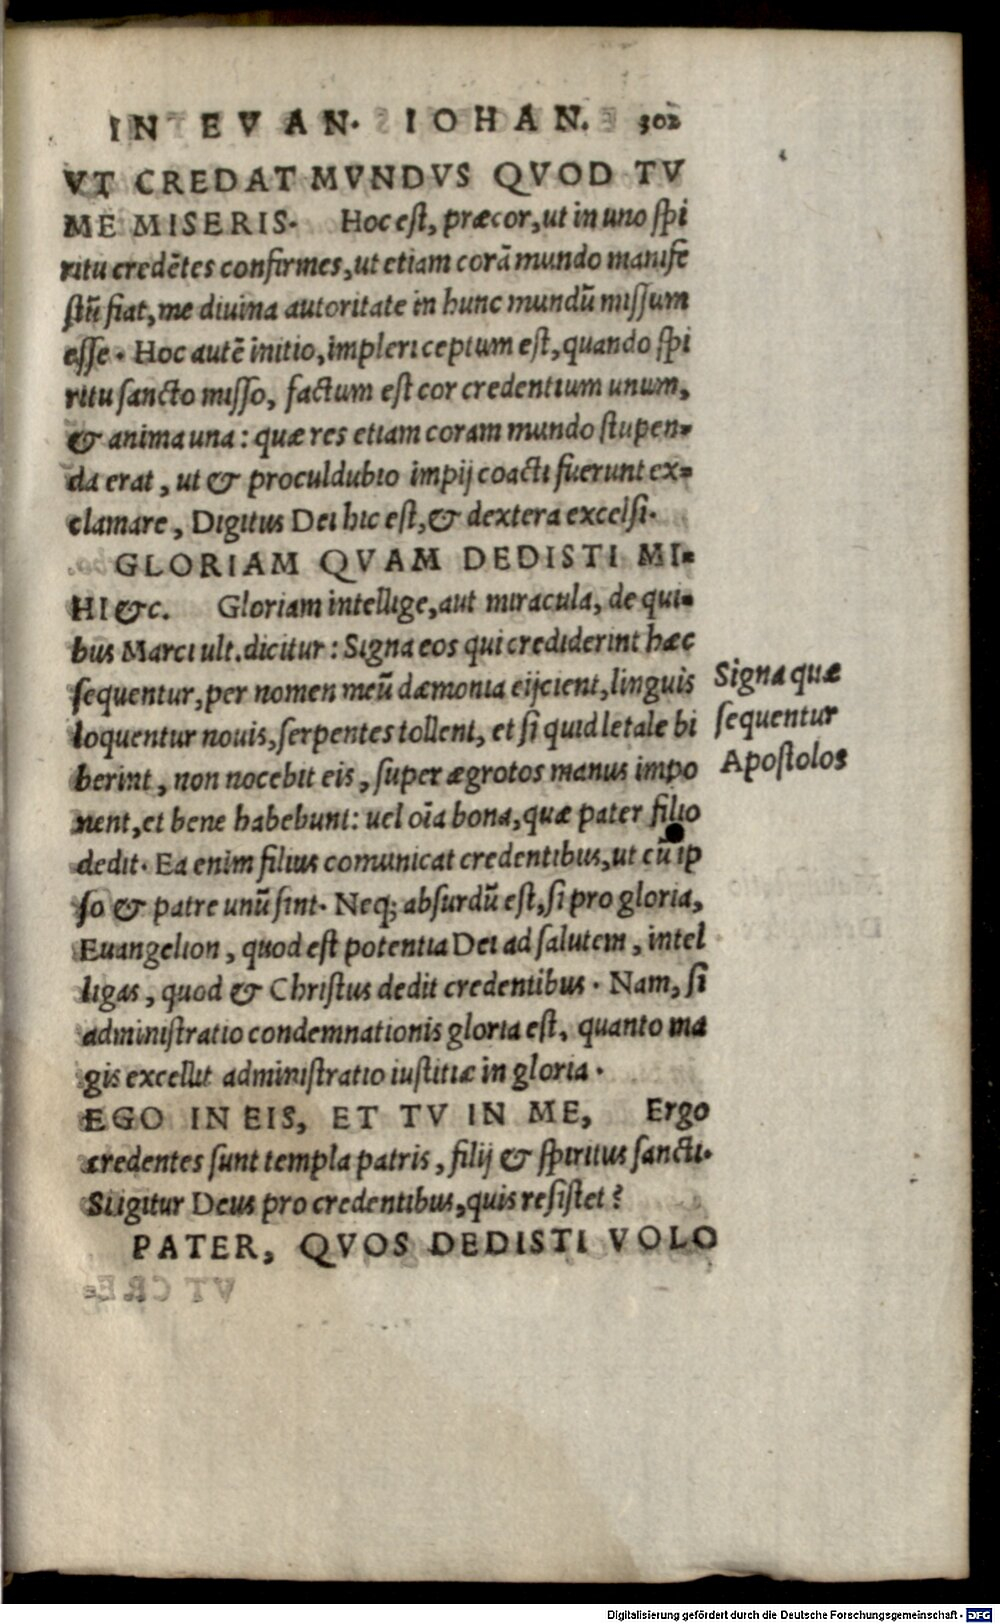 IN EVAN. IOHAN. 302
VT CREDAT MVNDVS QVOD TV
ME MISERIS. Hoc eſt, præcor, ut in uno ſpi
ritu credẽtes confirmes, ut etiam corã mundo manife
ſtũ fiat, me diuina autoritate in hunc mundũ miſſum
eſſe. Hoc autẽ initio, impleri ceptum eſt, quando ſpi
ritu ſancto miſſo, factum eſt cor credentium unum,
& anima una: quæ res etiam coram mundo ſtupen-
da erat, ut & proculdubio impij coacti fuerunt ex-
clamare, Digitus Dei hic eſt, & dextera excelſi.
GLORIAM QVAM DEDISTI MI-
HI &c. Gloriam intellige, aut miracula, de qui-
bus Marci ult. dicitur: Signa eos qui crediderint hæc
ſequentur, per nomen meũ dæmonia eijcient, linguis
loquentur nouis, ſerpentes tollent, et ſi quid letale bi
berint, non nocebit eis, ſuper ægrotos manus impo
nent, et bene habebunt: uel oĩa bona, quæ pater filio
dedit. Ea enim filius comunicat credentibus, ut cũ ip
ſo & patre unũ ſint. Neq; abſurdũ eſt, ſi pro gloria,
Euangelion, quod eſt potentia Dei ad ſalutem, intel
ligas, quod & Chriſtus dedit credentibus. Nam, ſi
adminiſtratio condemnationis gloria eſt, quanto ma
gis excellit adminiſtratio iuſtitiæ in gloria.
EGO IN EIS, ET TV IN ME, Ergo
credentes ſunt templa patris, filij & ſpiritus ſancti.
Si igitur Deus pro credentibus, quis reſiſtet?
PATER, QVOS DEDISTI VOLO
Signa quæ
ſequentur
Apoſtolos
Digitalisierung gefördert durch die Deutsche Forschungsgemeinschaft - DFG